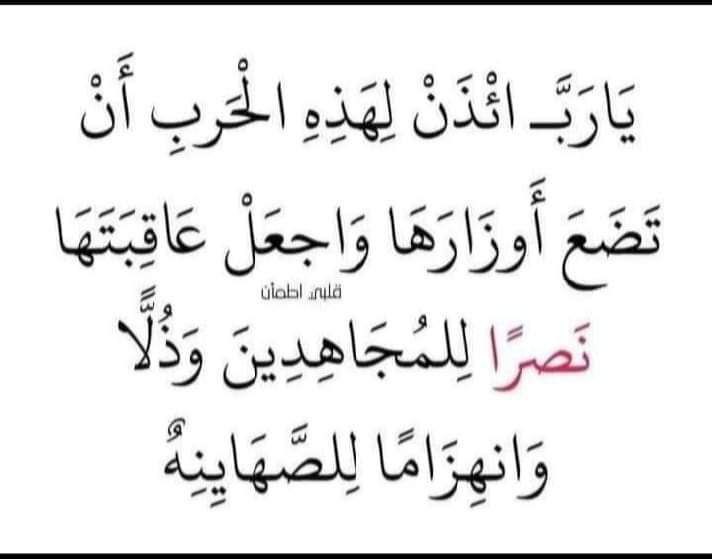 يَارَبَّـ ائْذَنْ لِهَذِهِ الْحَربِ أَنْ
تَضَعَ أَوزَارَهَا وَاجعَلْ عَاقِبَتَهَا
قلبي اطمأن
نَصرًا لِلمُجَاهِدِينَ وَذُلًّا
وَانهِزَامًا لِلصَّهَايِنِهٌ